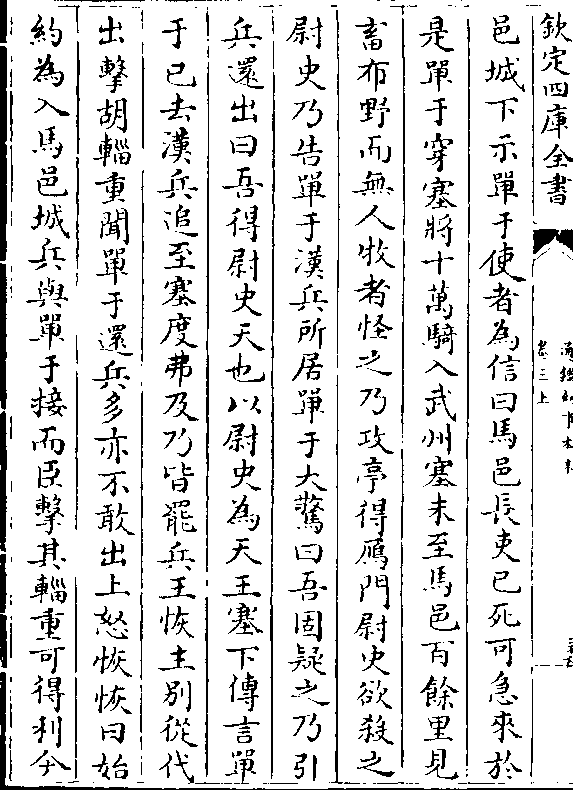 欽定四庫全書
卷三上
邑城下示單于使者為信曰馬邑長吏已死可急來於
是單于穿塞將十萬騎入武州塞未至馬邑百餘里見
畜布野而無人牧者怪之乃攻亭得鴈門尉史欲殺之
尉史乃告單于漢兵所居單于大驚曰吾固疑之乃引
兵還出曰吾得尉史天也以尉史為天王塞下傳言單
于已去漢兵追至塞度弗及乃皆罷兵王恢主别從代
出擊胡輜重聞單于還兵多亦不敢出上怒恢恢曰始
約為入馬邑城兵與單于接而臣擊其輜重可得利今